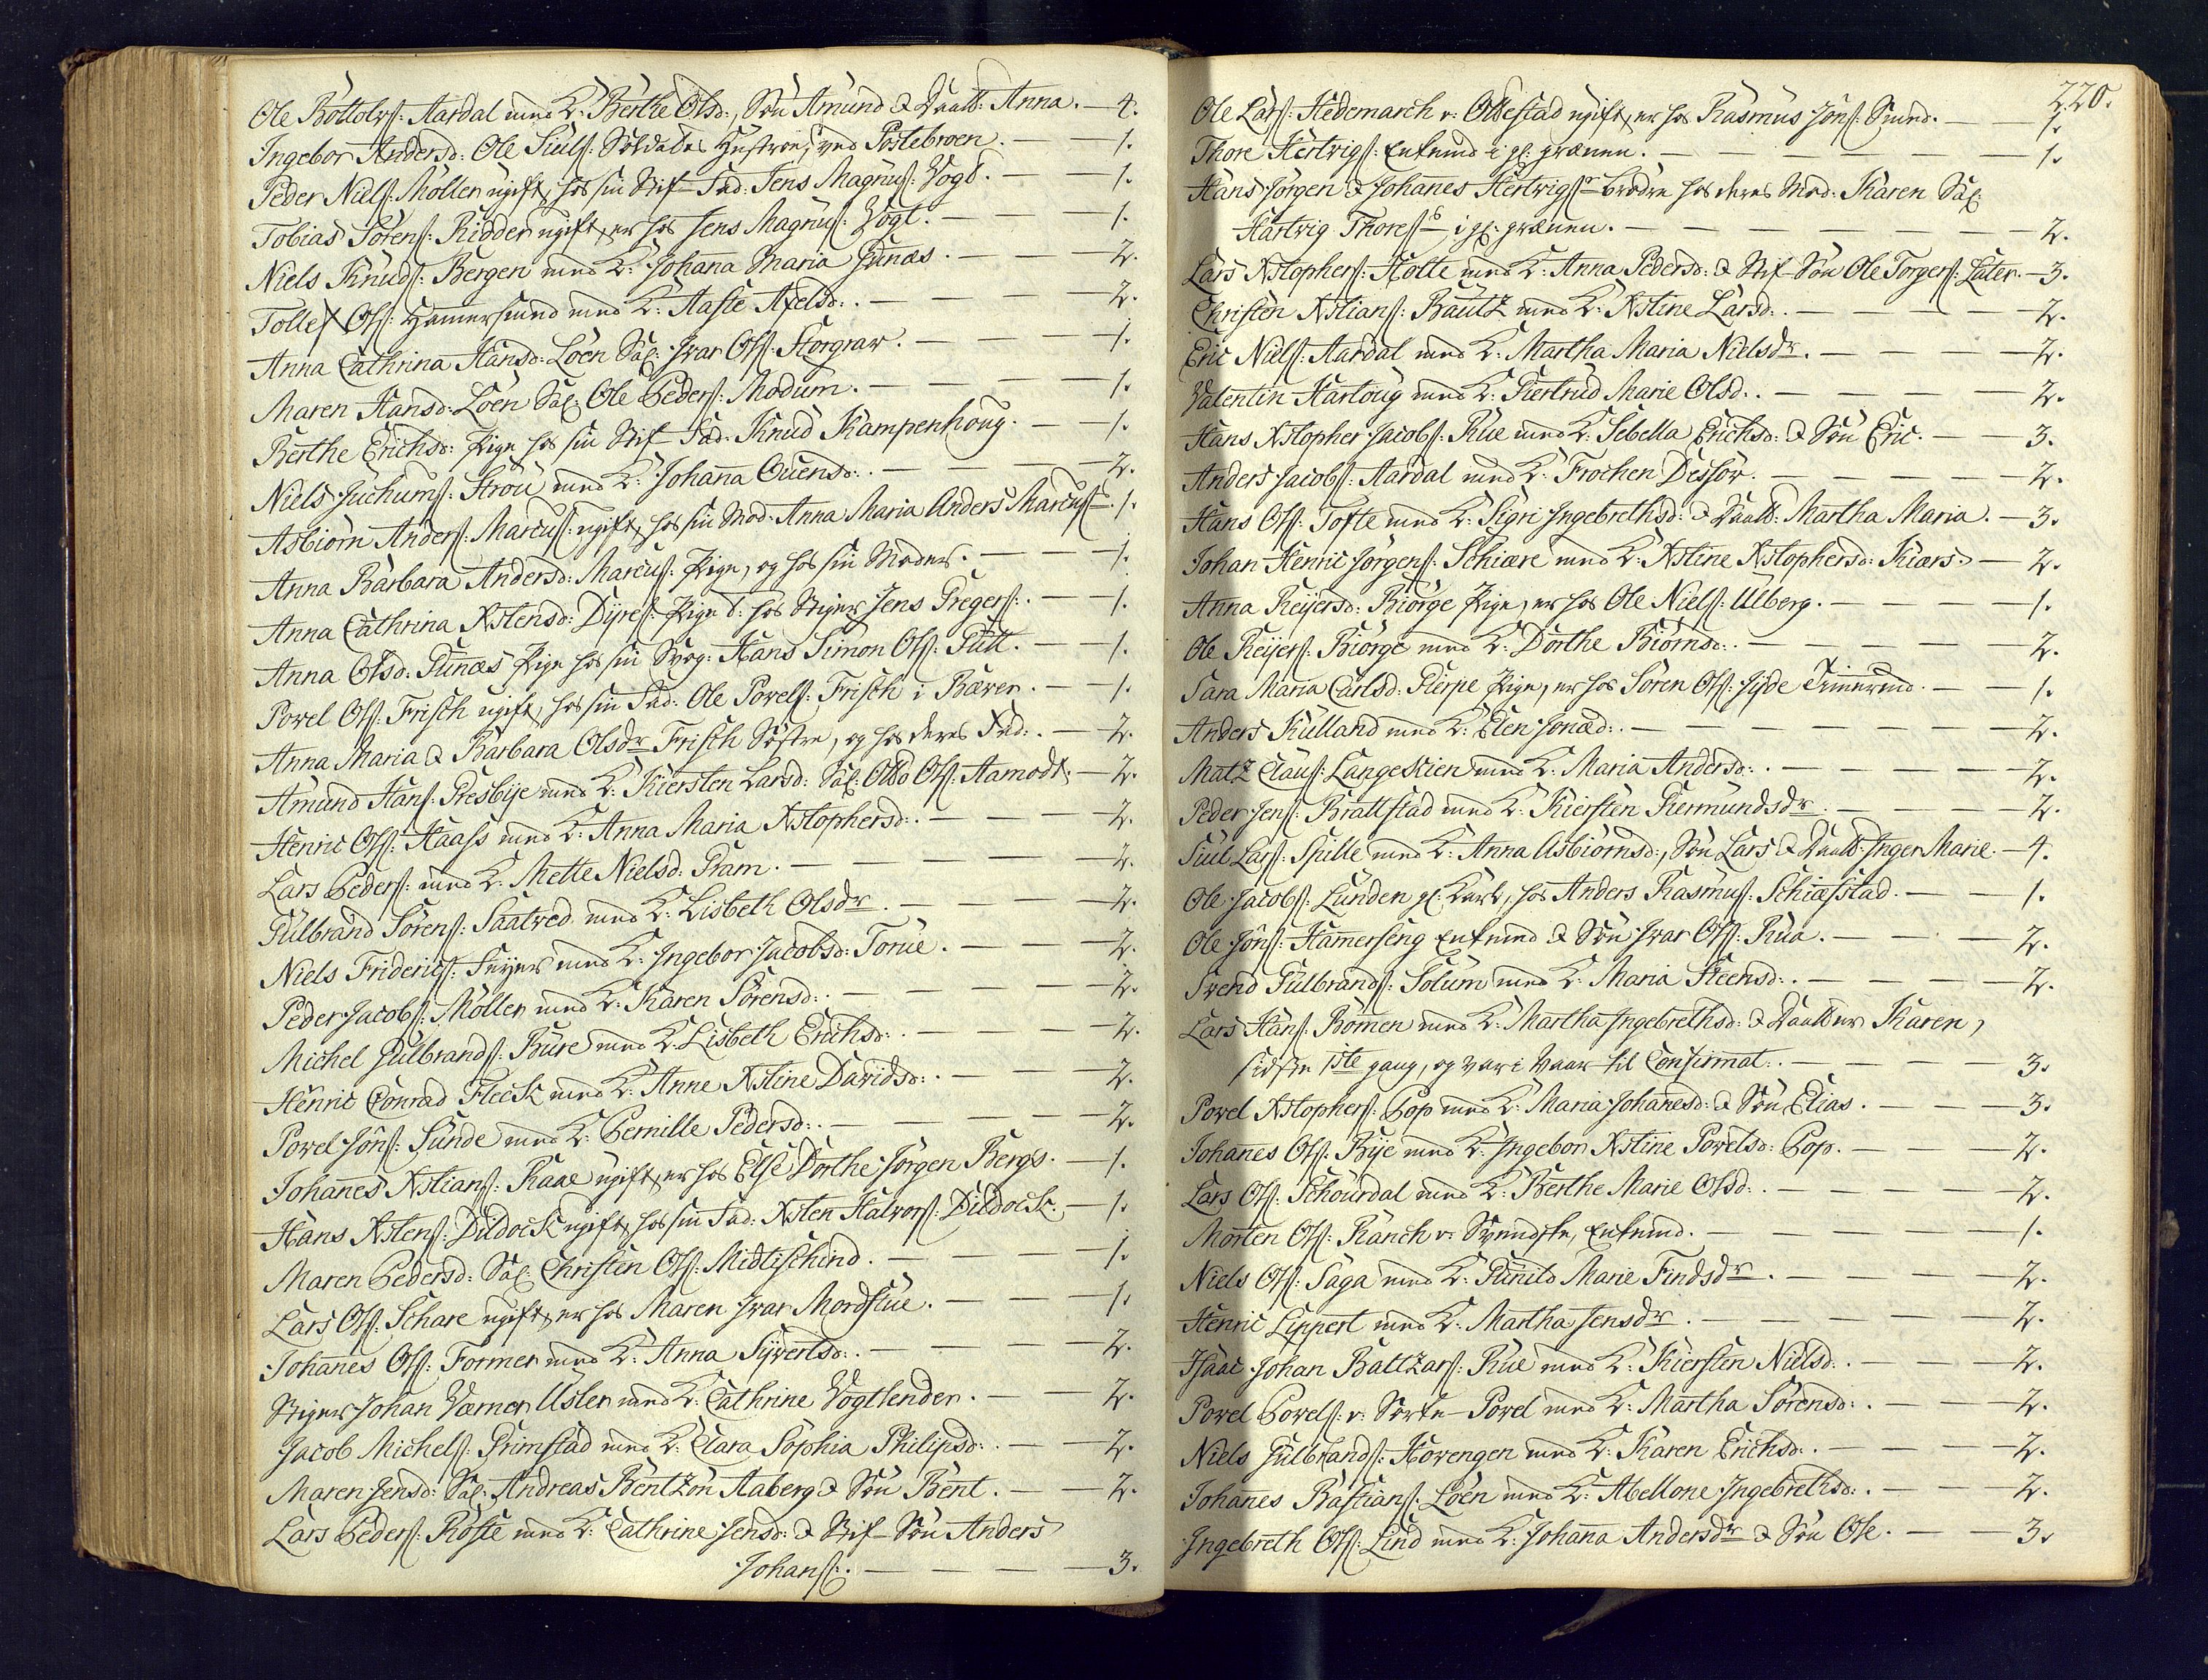 Ole Bottolvs: Aardal med K: Berthe Olsd:, Sön Amund & Daatt: Anna. — 4.
Ingebor Andersd: Ole Siuls: Soldades Hustroe, ved Postebroen. — 1.
Peder Niels: Möller ugift, hos sin Stif-Fad: Jens Magnus: Vogt. — 1.
Tobias Sörens: Ridder ugift, er hos Jens Magnus: Vogt. — 1.
Niels Knuds: Bergen med K: Johana Maria Funæs. — 2.
Tollef Ols: Hammersmed med K: Aaste Axelsd:. — 2.
Anna Cathrina Hansd: Loen Sal: Ivar Ols: Storgrav. — 1.
Maren Hansd: Loen Sal: Ole Peders: Modum. — 1.
Berthe Erichsd: Pige hos sin Stif-Fad: Knud Kampenhoug. — 1.
Niels Juchums: Strou med K: Johana Ouensd:. — 2.
Asbiörn Anders: Marcus: ugift, hos sin Mod: Anna Maria Anders Marcuss. 1.
Anna Barbara Andersd: Marcus: Pige, og hos sin Moder. — 1.
Anna Cathrina Xstensd: Dyres: Pige t: hos Stiger Jens Gregers:. — 1.
Anna Olsd: Funæs Pige hos sin Svog: Hans Simon Ols: Gull. — 1.
Povel Ols: Frisch ugift, hos sin Fad: Ole Povels: Frisch i Bæven. — 1.
Anna Maria & Barbara Olsdr Frisch Söstre, og hos deres Fad:. — 2.
Amund Hans: Presbye med K: Kiersten Larsd: Sal: Oldo Ols: Aamodt. — 2.
Henric Ols: Haass med K: Anna Maria Xstophersd:. — 2.
Lars Peders: med K: Mette Nielsd: Gram. — 2.
Gulbrand Sörens: Saatved med K: Lisbeth Olsdr. — 2.
Niels Friderics: Feyer med K: Ingebor Jacobsd: Torüe. — 2.
Peder Jacobs: Möller med K: Karen Sörensd:. — 2.
Michel Gulbrands: Bure med K: Lisbeth Erichsd:. — 2.
Henric Conrad Fleck med K: Anne Xstine Davidsd:. — 2.
Povel Jöns: Sunde med K: Pernille Pedersd:. — 2.
Johanes Xstians: Raae ugift, er hos Else Dorthe Jörgen Bergs. — 1.
Hans Xstens: Dildock ugift, hos sin Fad: Xsten Halvors: Dildock. — 1.
Maren Pedersd: Sal: Christen Ols: Midtischind. — 1.
Lars Ols: Schare ugift, er hos Maren Ivar Mordstue. — 1.
Johanes Ols: Former med K: Anna Syvertsd:. — 2.
Stiger Johan Værner Usler med K: Cathrine Vogtlender. — 2.
Jacob Michels: Grimstad med K: Clara Sophia Philipsd:. — 2.
Maren Jensd: Sal: Andreas Bentzon Aaberg & Sön Bent. — 2.
Lars Peders: Röste med K: Cathrine Jensd: & Stif-Sön Anders
Johans:. — 3.
220.
Ole Lars: Hedemarch v: Ollestad ugift, er hos Rasmus Jöns: Smed. — 1.
Thore Hertvigs: Enkemd i gl: grænen. — 1.
Hans Jörgen & Johanes Hertvigsr brödre hos deres Mod: Karen Sal:
Hartvig Thoress i gl: grænen. — 2.
Lars Xstophers: Holte med K: Anna Pedersd: & Stif-Sön Ole Torgers: Sater. — 3.
Christen Xstians: Bautz med K: Xstine Larsd:. — 2.
Eric Niels: Aardal med K: Martha Maria Nielsdr. — 2.
Valentin Hartoug med K: Giertrud Marie Olsd:. — 2.
Hans Xstopher Jacobs: Rüe med K: Sebella Erichsd: & Sön Eric. — 3.
Anders Jacobs: Aardal med K: Frochen Dessör. — 2.
Hans Ols: Tofte med K: Sigri Ingebrethsd: & Daatt: Martha Maria. — 3.
Johan Henric Jörgens: Schiære med K: Xstine Xstophersd: Kiærs:. — 2.
Anna Reyersd: Biörge Pige, er hos Ole Niels: Ulberg. — 1.
Ole Reyers: Biörge med K: Dorthe Biörnsd:. — 2.
Sara Maria Carlsd: Gierpe Pige, er hos Sören Ols: Hyde Timermd. — 1.
Anders Kulland med K: Elen Jonæd:. — 2.
Matz Claus: Langeskien med K: Maria Andersd:. — 2.
Peder Jens: Brattstad med K: Kiersten Giermundsdr. — 2.
Siul Lars: Spille med K: Anna Asbiörnsd:, Sön Lars & Daatt: Inger Marie. — 4.
Ole Jacobs: Lunden gl: Karl, hos Anders Rasmus: Schiæfstad. — 1.
Ole Jöns: Hamerseng Enkemd & Sön Ivar Ols: Rua. — 2.
Svend Gulbrands: Solum med K: Maria Steensd:. — 2.
Lars Hans: Bömen med K: Martha Ingebrethsd: & Daatter Karen,
sidste 1ste gang, og var i Vaar til Confirmat:. — 3.
Povel Xstophers: Pop med K: Maria Johanesd: & Sön Elias. — 3.
Johanes Ols: Bye med K: Ingebor Xstine Povelsd: Pop. — 2.
Lars Ols: Schourdal med K: Berthe Marie Olsd:. — 2.
Morten Ols: Ranch v: Svendste, Enkemd. — 1.
Niels Ols: Saga med K: Gunild Marie Findsdr. — 2.
Henric Lippert med K: Martha Jensdr. — 2.
Isaac Johan Baltzars: Rüe med K: Kiersten Nielsd:. — 2.
Povel Povels: v: Sorte-Povel med K: Martha Sörensd:. — 2.
Niels Gulbrands: Hovengen med K: Karen Erichsd:. — 2.
Johanes Bastians: Loen med K: Abellone Ingebrethsd:. — 2.
Ingebreth Ols: Lind med K: Johana Andersdr & Sön Ole. — 3.